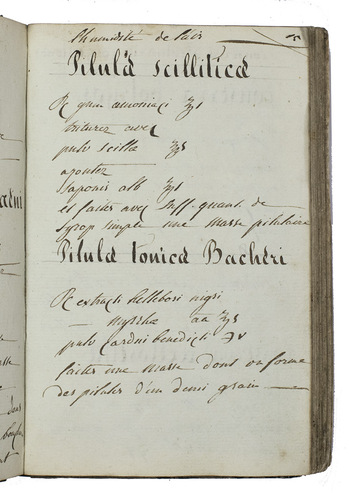 l'humidité de l'air
Pilulæ scilliticæ
℞ gum amoniaci ℥j
triturez avec
pulv scillæ ℥ß
ajoutez
saponis alb ℥j
et faites avec suff. quant. de
syrop simple une masse pilulaire
Pilulæ tonicæ Bacheri
℞ extracti hellebori nigri
— myrrhæ aa ℥ß
pulv cardui benedicti
faites une masse dont on forme
des pilules d'un demi grain